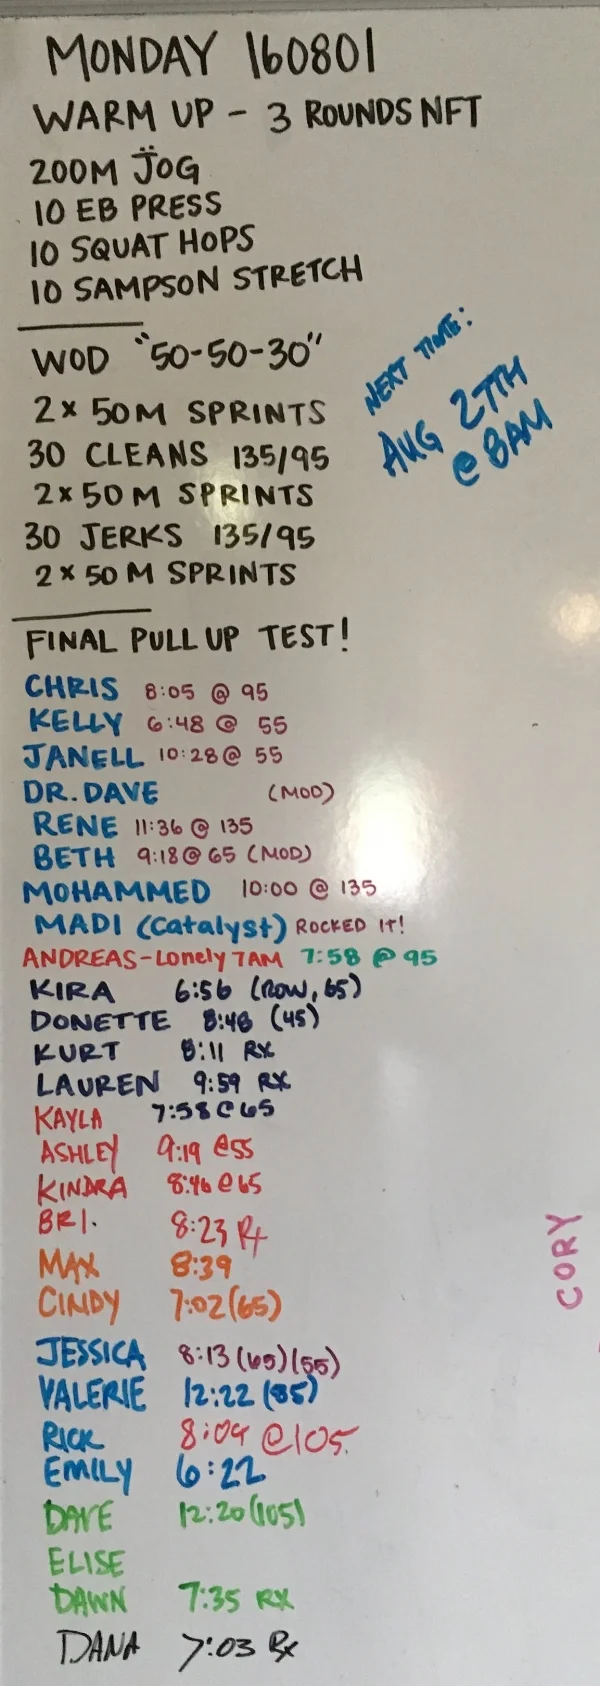 MONDAY 160801
WARM UP - 3 ROUNDS NFT
200M JOG
10 EB PRESS
10 SQUAT HOPS
10 SAMPSON STRETCH
WOD "50-50-30"
2 x 50M SPRINTS
30 CLEANS 135/95
2 x 50M SPRINTS
30 JERKS 135/95
2 x 50M SPRINTS
NEXT TIME:
AUG 27TH
@ 8AM
FINAL PULL UP TEST!
CHRIS 8:05 @ 95
KELLY 6:48 @ 55
JANELL 10:28 @ 55
DR. DAVE (MOD)
RENE 11:36 @ 135
BETH 9:18 @ 65 (MOD)
MOHAMMED 10:00 @ 135
MADI (Catalyst) ROCKED IT!
ANDREAS - Lonely 7AM 7:58 @ 95
KIRA 6:56 (ROW, 65)
DONETTE 8:48 (45)
KURT 8:11 RX
LAUREN 9:59 RX
KAYLA 7:58 @ 65
ASHLEY 9:19 @55
KINDRA 8:46 @ 65
BRI. 8:23 Rx
MAX 8:39
CINDY 7:02 (65)
JESSICA 8:13 (65) (55)
VALERIE 12:22 (85)
RICK 8:09 @105.
EMILY 6:22
DAVE 12:20 (105)
ELISE
DAWN 7:35 RX
DANA 7:03 Rx
CORY